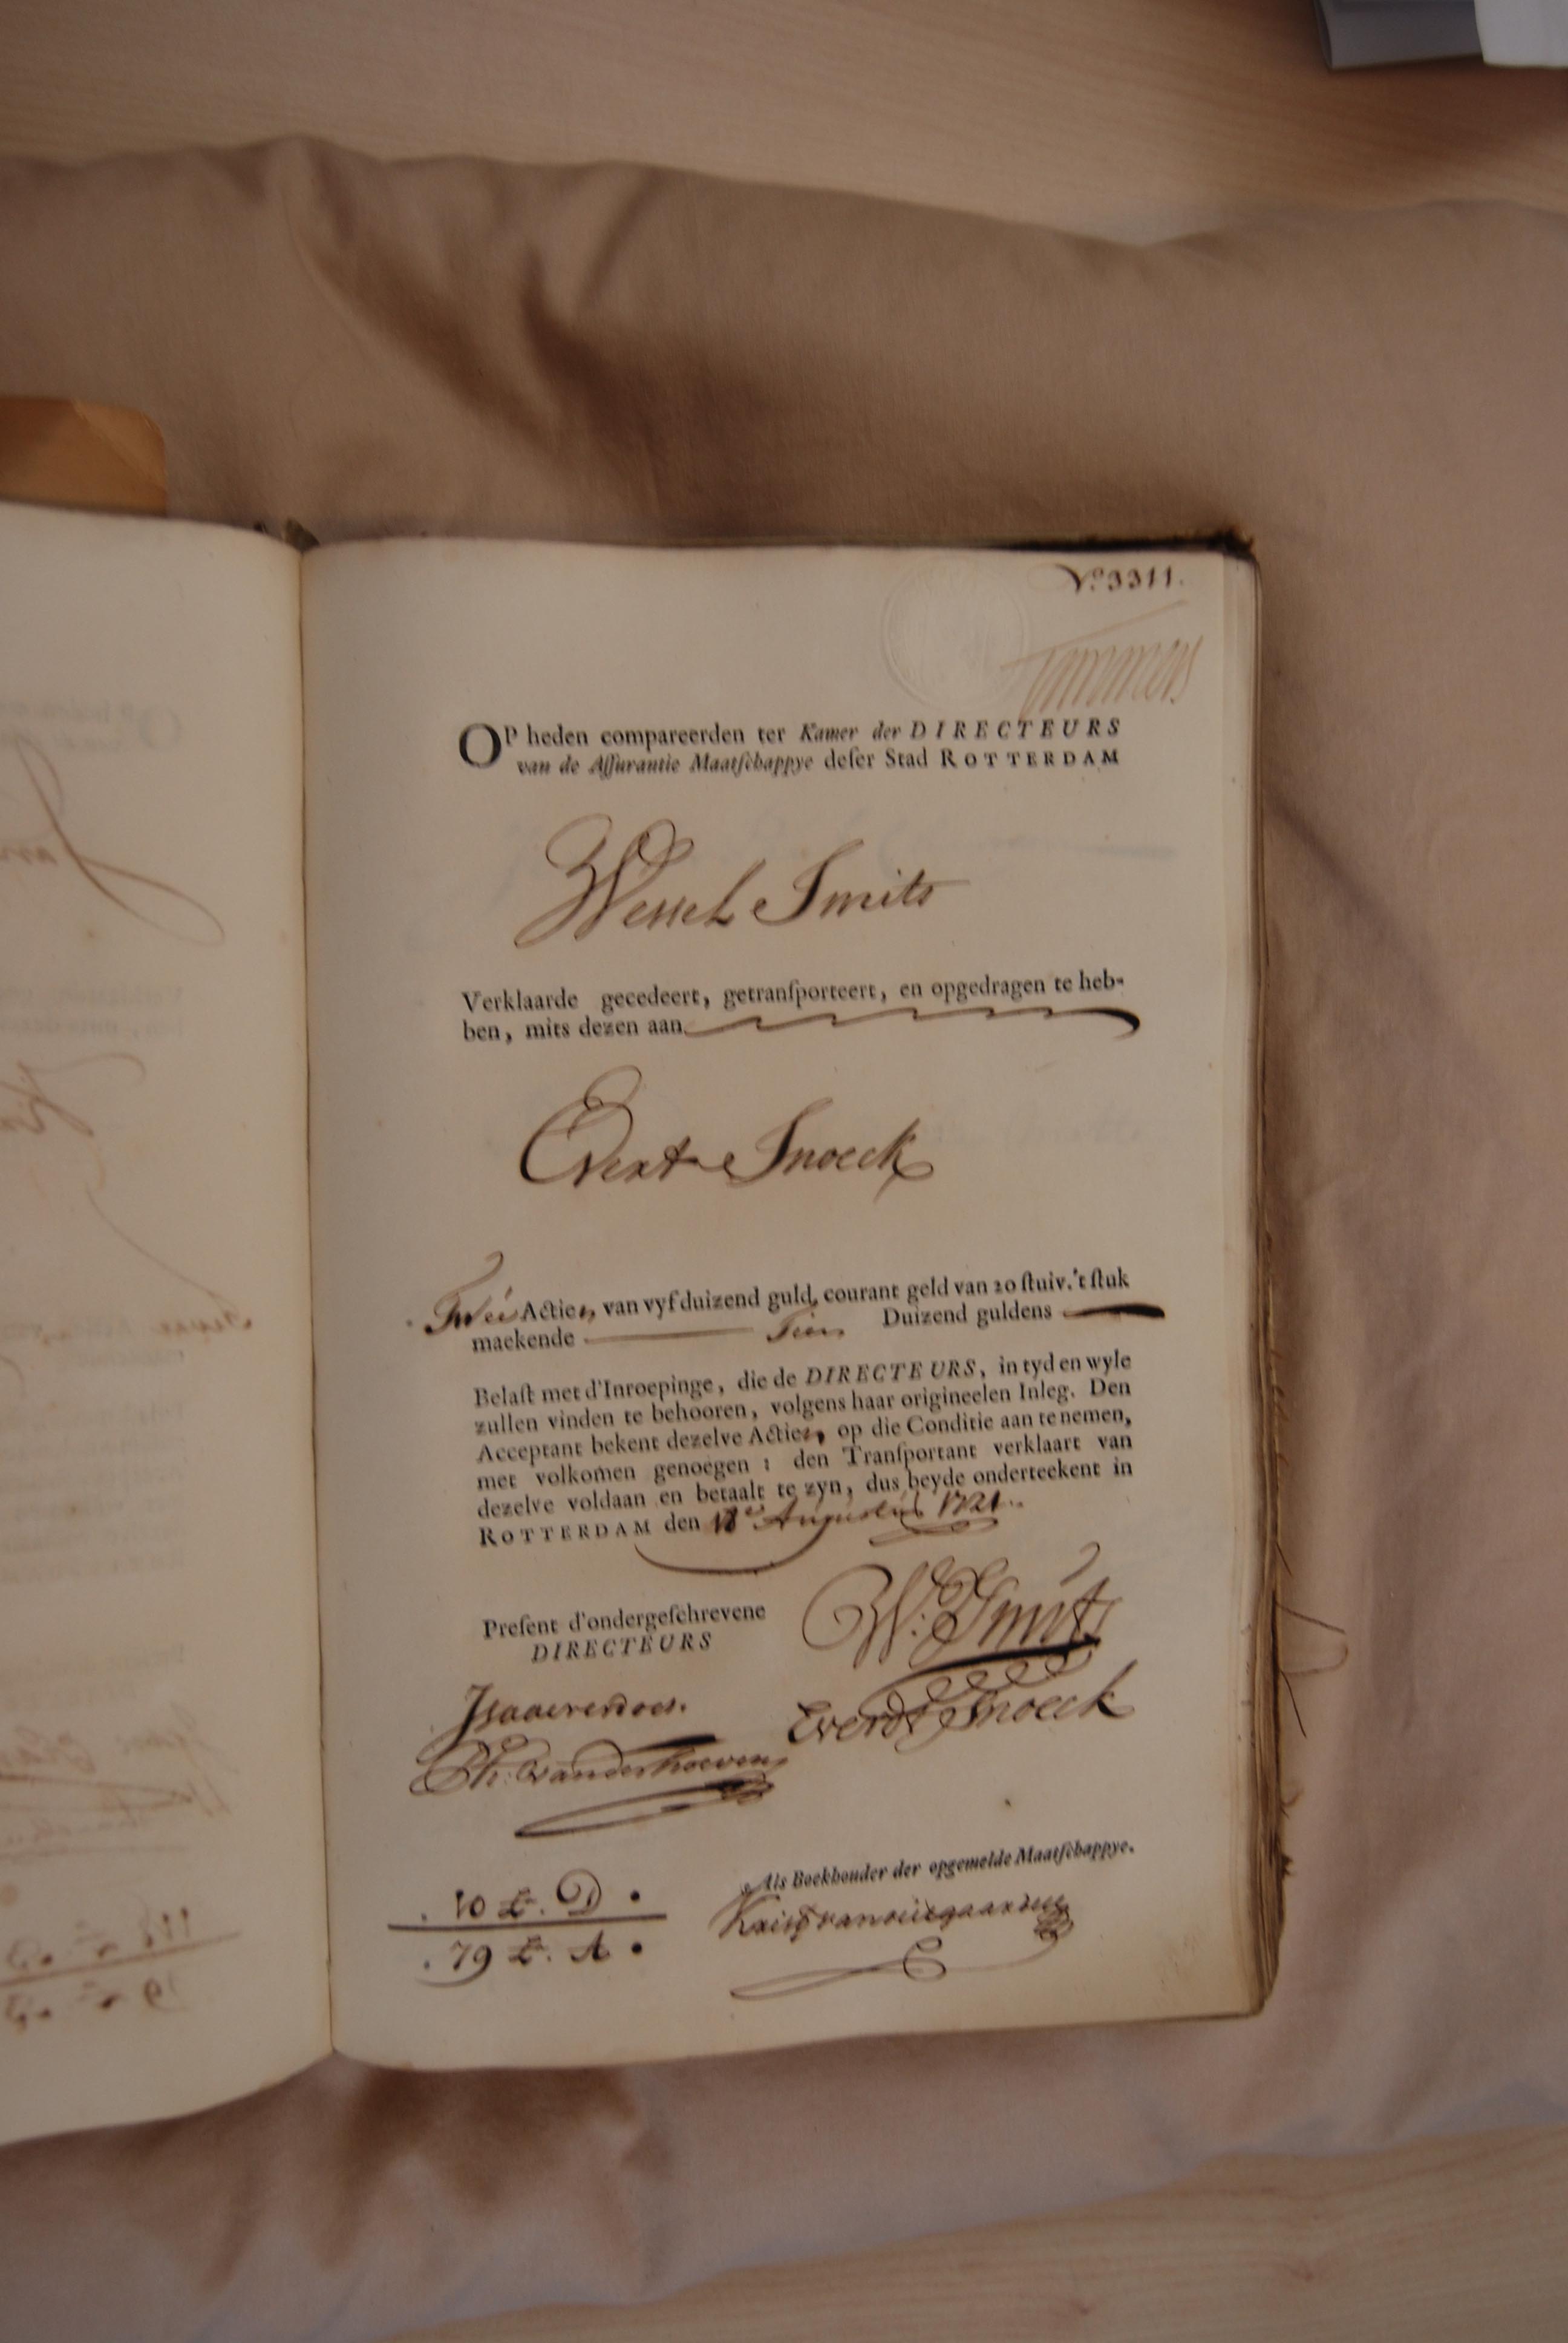 No. 3311.
Timmers
OP heden compareerden ter Kamer der DIRECTEURS
van de Assurantie Maatschappye deser Stad ROTTERDAM
Wessel Smits
Verklaarde gecedeert, getransporteert, en opgedragen te heb-
ben, mits dezen aan
Evert Snoeck
Twee Actien, van vyf duizend guld, courant geld van 20 stuiv. 't stuk
maekende Tien Duizend guldens
Belast met d'Inroepinge, die de DIRECTEURS, in tyd en wyle
zullen vinden te behooren, volgens haar origineelen Inleg. Den
Acceptant bekent dezelve Actien, op die Conditie aan te nemen,
met volkomen genoegen: den Transportant verklaart van
dezelve voldaan en betaalt te zyn, dus beyde onderteekent in
ROTTERDAM den Augustus 1721.
Present d'ondergeschrevene
DIRECTEURS
W: Smits
Everdt Snoeck
Ph: vanderhoeven
Als Boekhouder der opgemelde Maatschappye.
10 £. D.
79 £. A.